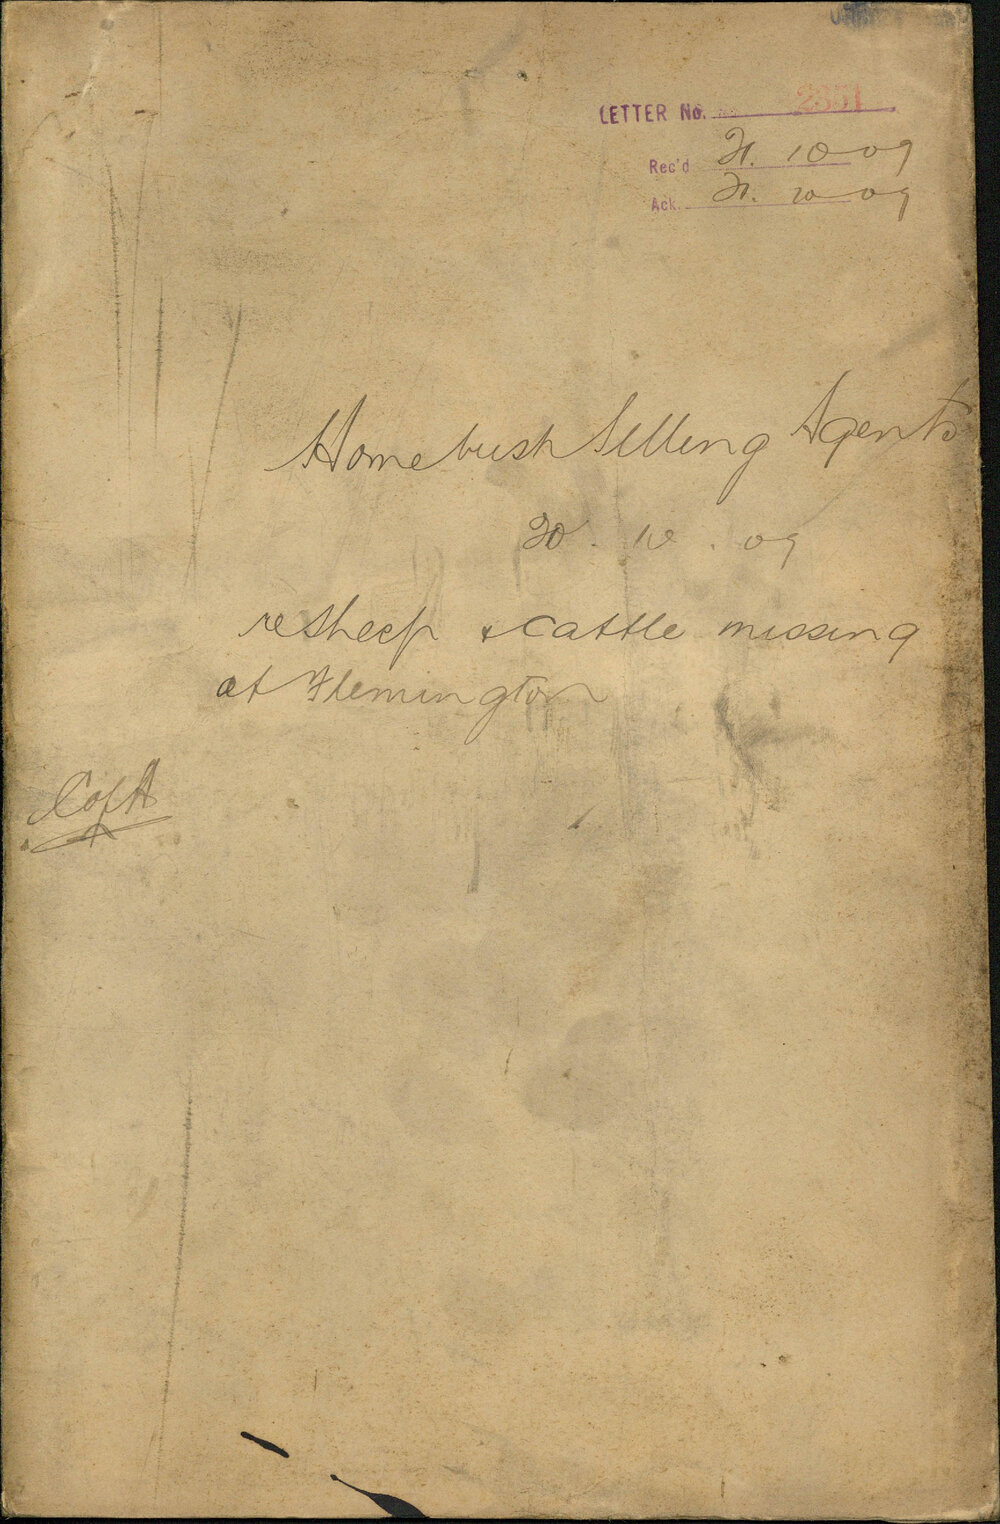 LETTER No. 2351
Rec'd 21. 10 09
Ack. 21. 10 09
Homebush Selling Agents
20. 10. 09
re Sheep & Cattle missing
at Flemington
C of A